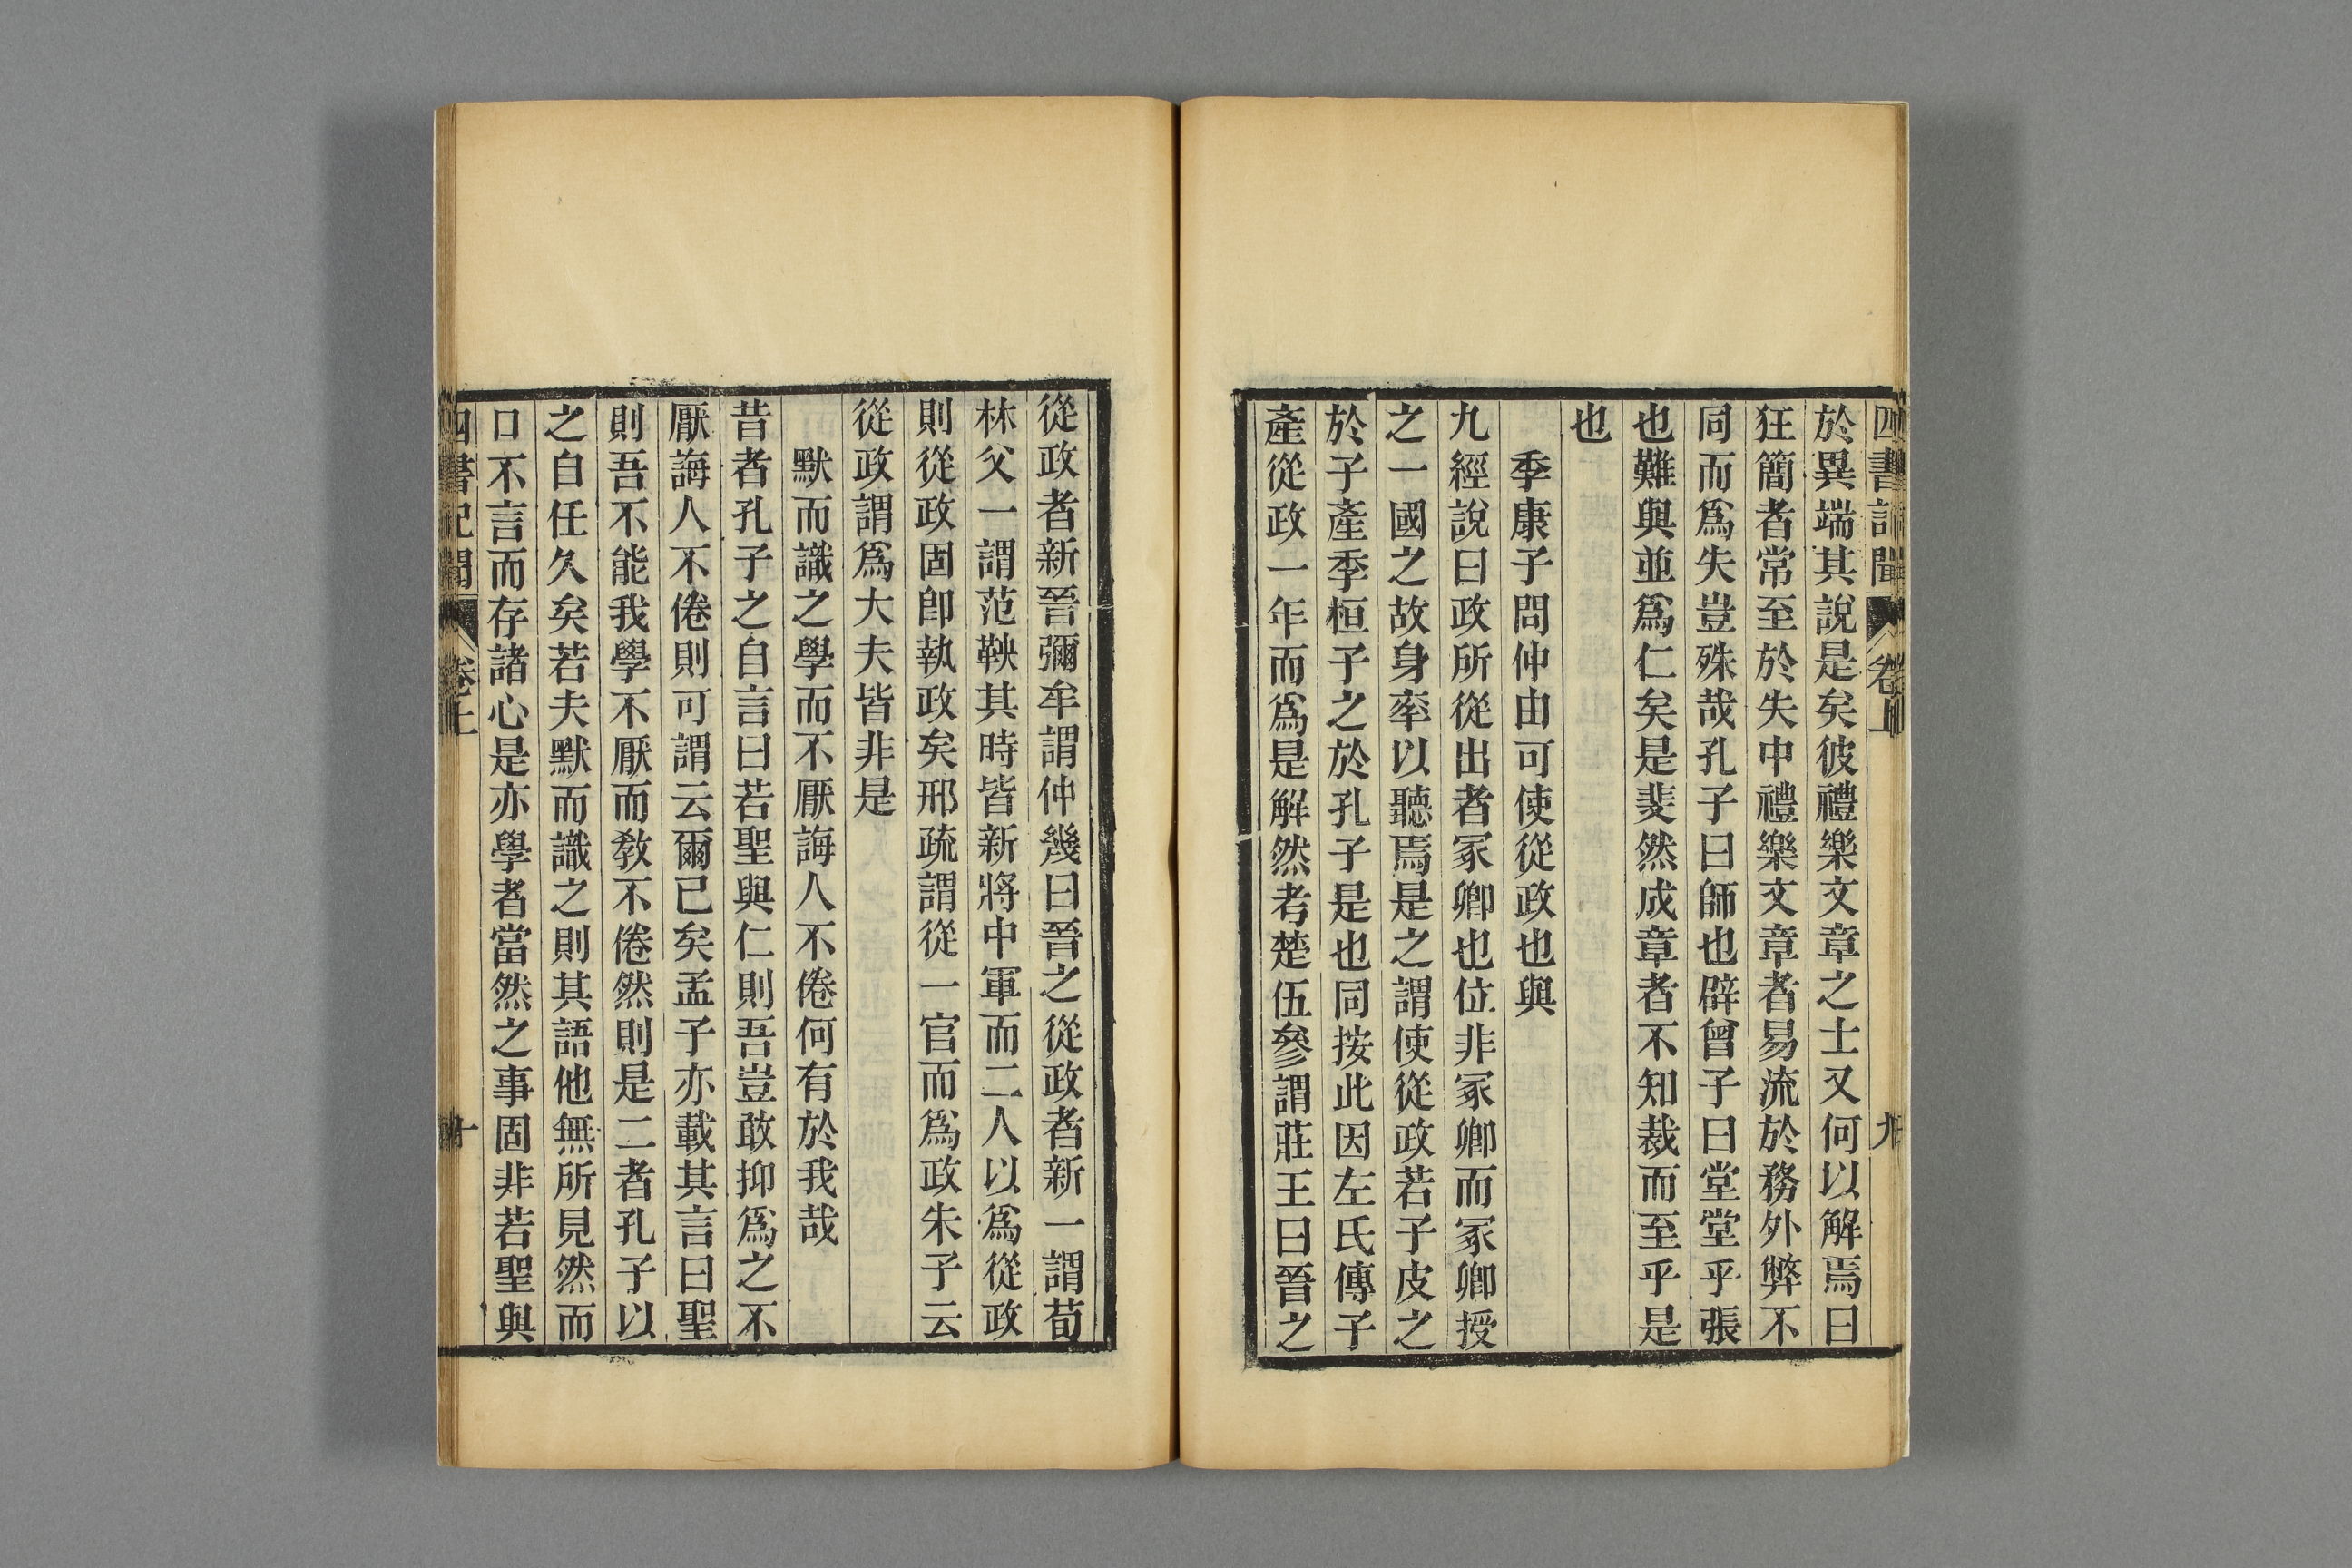 四書記聞 卷上 九
於異端其說是矣彼禮樂文章之士又何以解焉曰
狂簡者常至於失中禮樂文章者易流於務外弊不
同而爲失豈殊哉孔子曰師也辟曾子曰堂堂乎張
也難與並爲仁矣是斐然成章者不知裁而至乎是
也
季康子問仲由可使從政也與
九經說曰政所從出者冢卿也位非冢卿而冢卿授
之一國之故身率以聽焉是之謂使從政若子皮之
於子產季桓子之於孔子是也同按此因左氏傳子
產從政一年而爲是解然考楚伍參謂莊王曰晉之
從政者新晉彌牟謂仲幾曰晉之從政者新一謂荀
林父一謂范鞅其時皆新將中軍而二人以爲從政
則從政固卽執政矣邢疏謂從一官而爲政朱子云
從政謂爲大夫皆非是
默而識之學而不厭誨人不倦何有於我哉
昔者孔子之自言曰若聖與仁則吾豈敢抑爲之不
厭誨人不倦則可謂云爾已矣孟子亦載其言曰聖
則吾不能我學不厭而教不倦然則是二者孔子以
之自任久矣若夫默而識之則其語他無所見然而
口不言而存諸心是亦學者當然之事固非若聖與
四書記聞 卷上 十